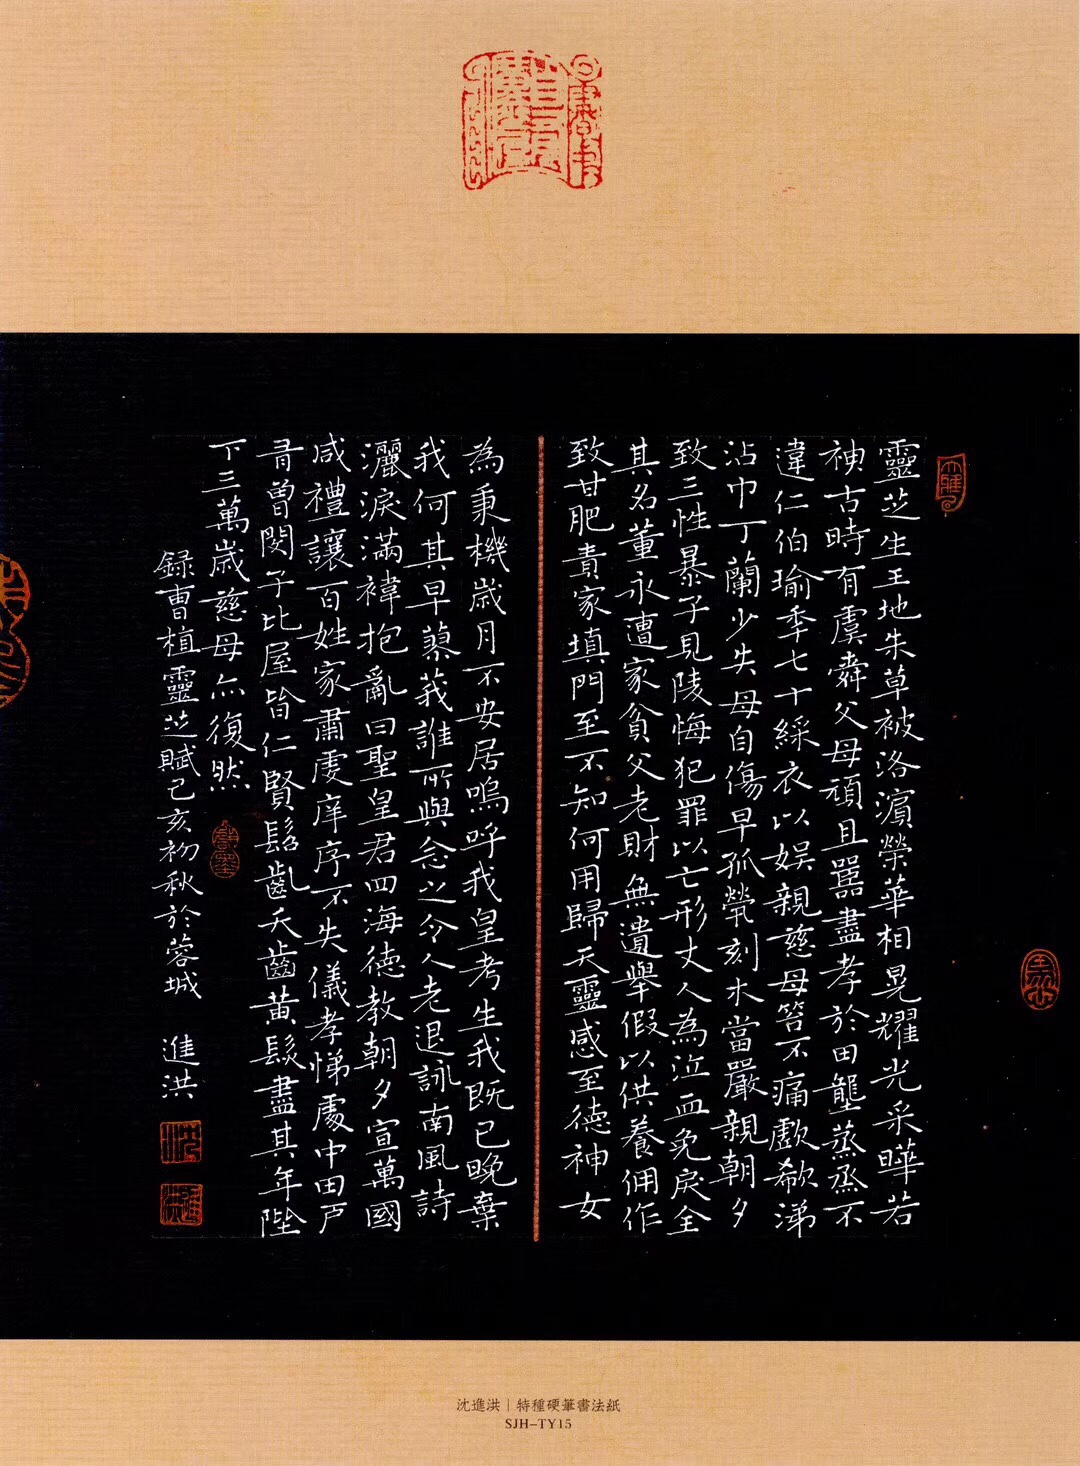 靈芝生王地朱草被洛濱榮華相晃耀光采曄若
神古時有虞舜父母頑且嚚盡孝於田壟蒸蒸不
違仁伯瑜年七十綵衣以娛親慈母笞不痛歔欷涕
沾巾丁蘭少失母自傷早孤煢刻木當嚴親朝夕
致三性暴子見陵悔犯罪以亡形丈人為泣血免戾全
其名董永遭家貧父老財無遺舉假以供養佣作
致甘肥責家填門至不知何用歸天靈感至德神女
為秉機歲月不安居嗚呼我皇考生我既已晚棄
我何其早蓼莪誰所興念之令人老退詠南風詩
灑淚滿褘抱亂曰聖皇君四海德教朝夕宣萬國
咸禮讓百姓家肅虔庠序不失儀孝悌處中田戶
有曾閔子比屋皆仁賢髫齔夭齒黃髮盡其年陛
下三萬歲慈母亦復然
録曹植靈芝賦己亥初秋於蓉城 進洪
沈進洪｜特種硬筆書法紙
SJH-TY15